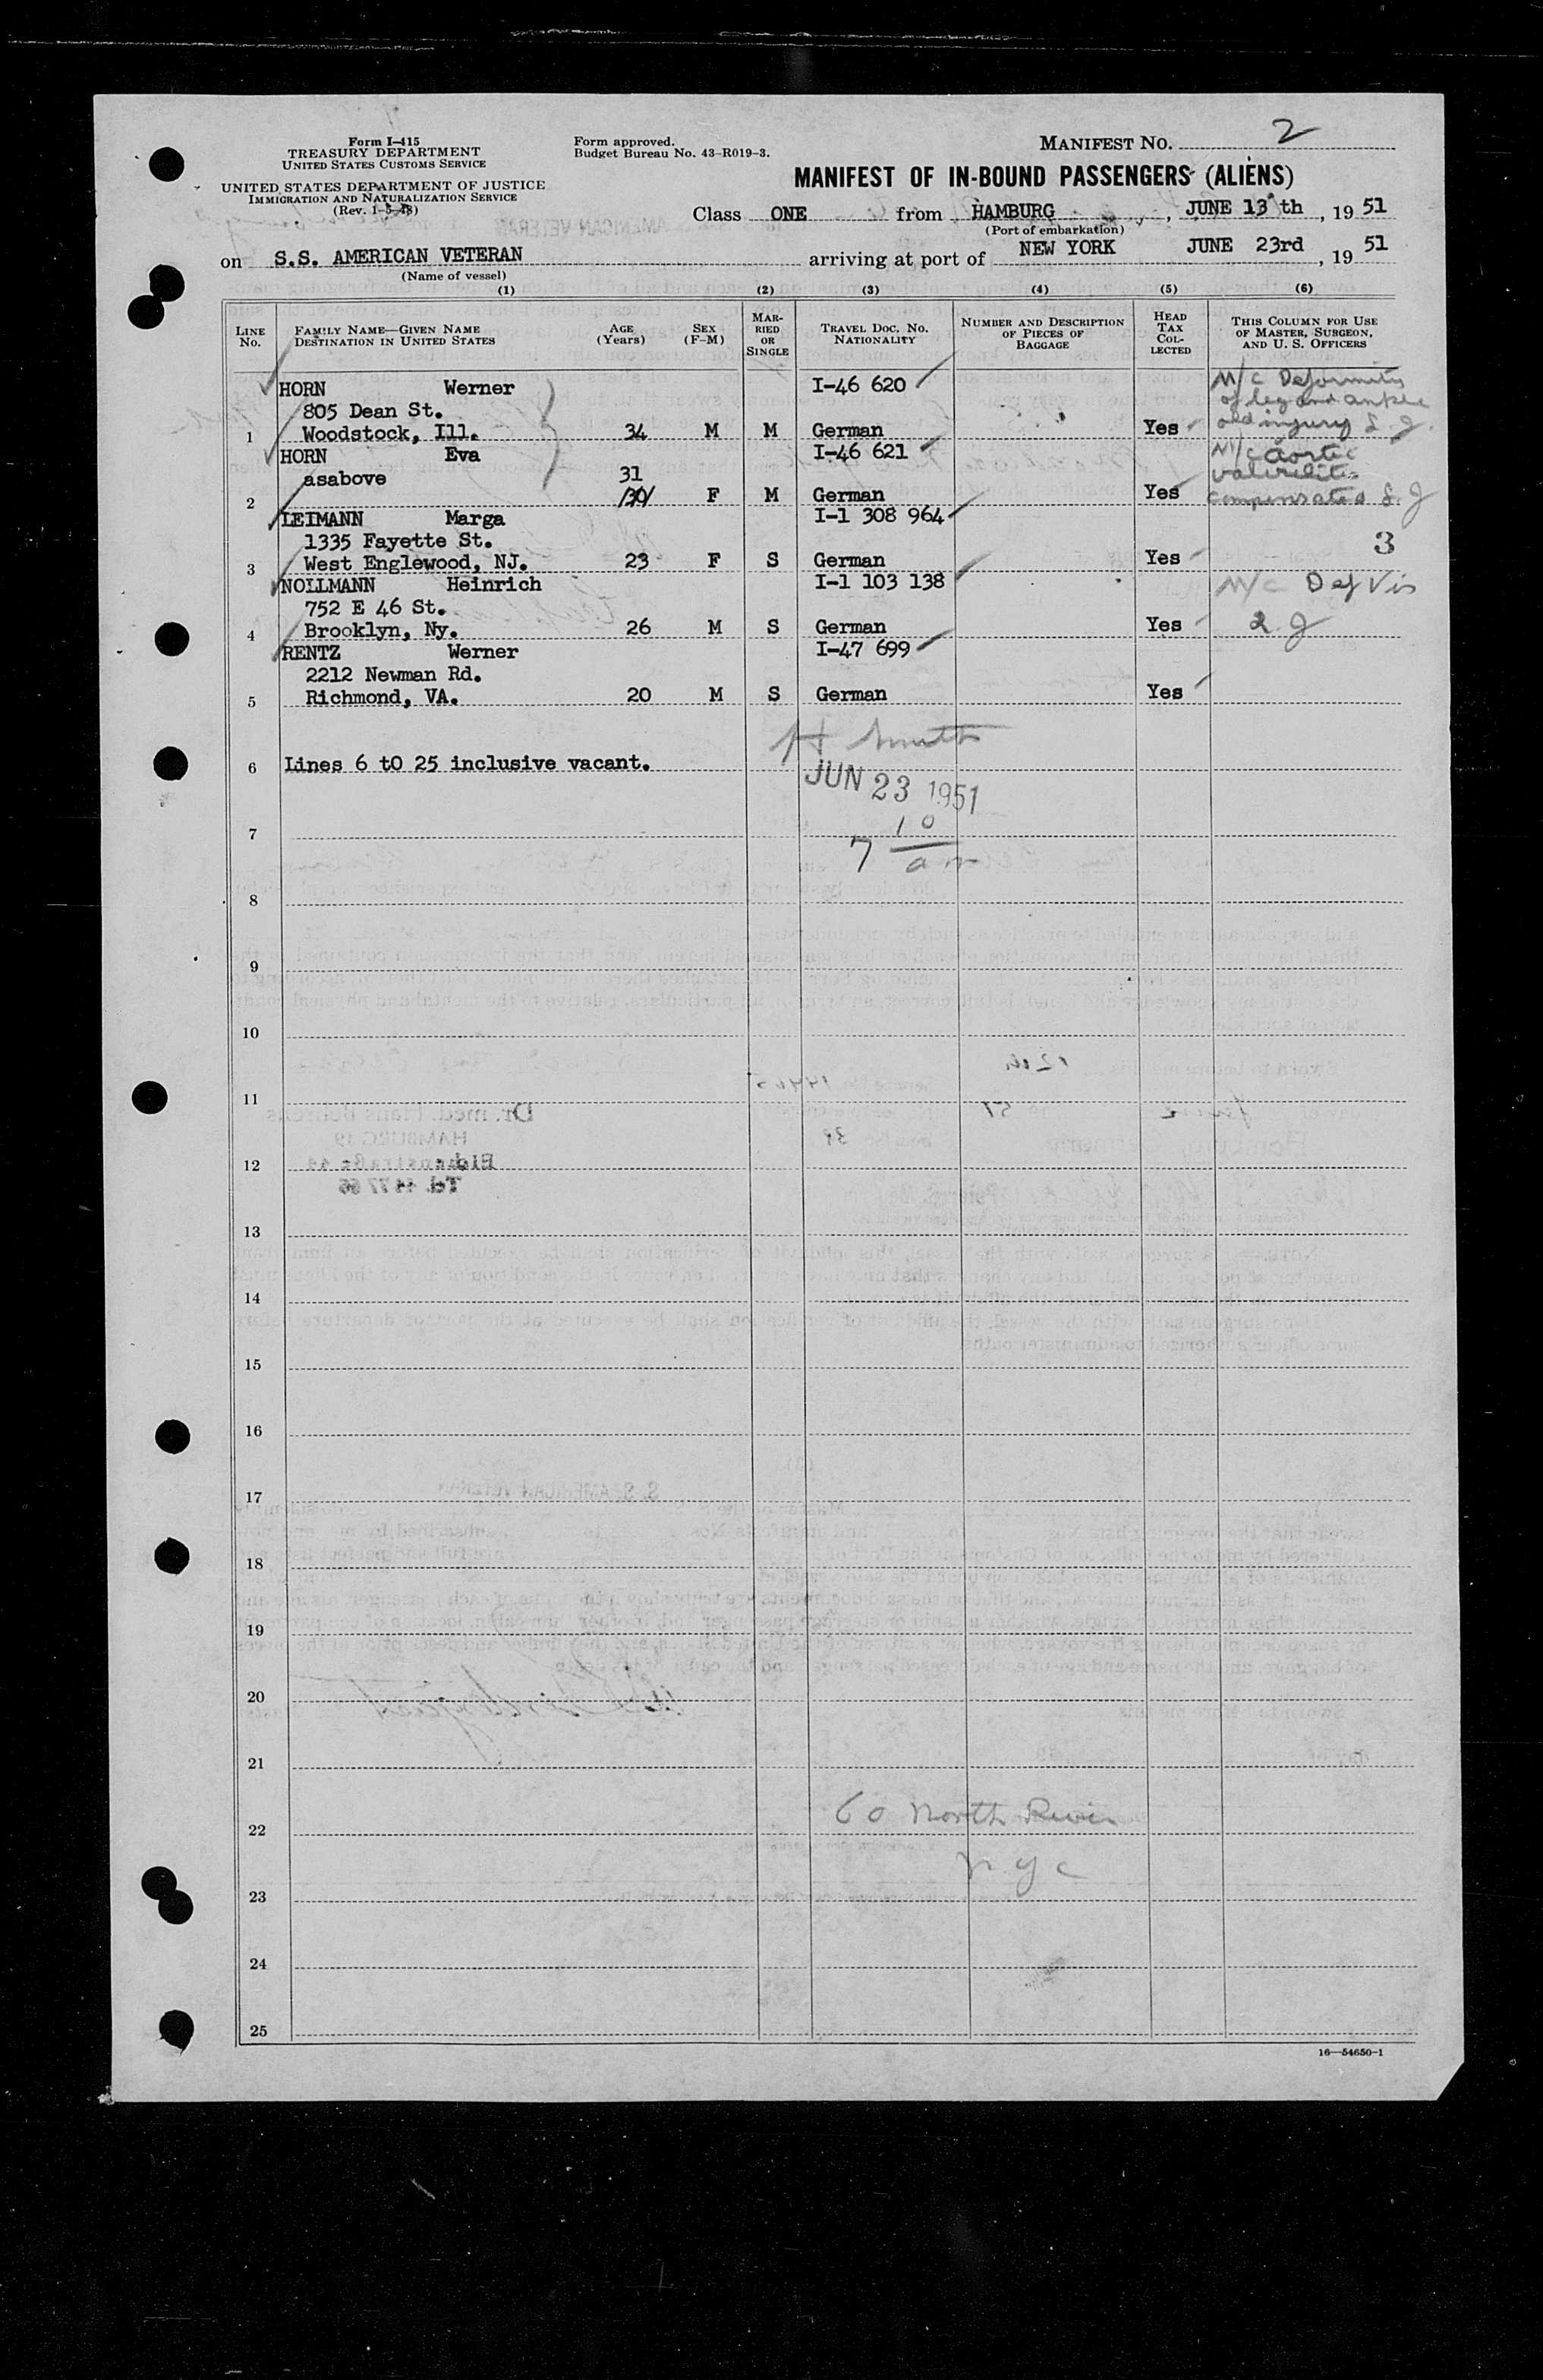 Form I-415
TREASURY DEPARTMENT
UNITED STATES CUSTOMS SERVICE
UNITED STATES DEPARTMENT OF JUSTICE
IMMIGRATION AND NATURALIZATION SERVICE
(Rev. 1-5-48)
Form approved.
Budget Bureau No. 43-R019-3.
MANIFEST NO. 2
MANIFEST OF IN-BOUND PASSENGERS (ALIENS)
Class ONE from HAMBURG, JUNE 13 th, 19 51
(Port of embarkation)
on S.S. AMERICAN VETERAN arriving at port of NEW YORK JUNE 23rd, 19 51
(Name of vessel)
(1) (2) (3) (4) (5) (6)
LINE No. FAMILY NAME—GIVEN NAME DESTINATION IN UNITED STATES AGE (Years) SEX (F-M) MARRIED OR SINGLE TRAVEL DOC. NO. NATIONALITY NUMBER AND DESCRIPTION OF PIECES OF BAGGAGE HEAD TAX COLLECTED THIS COLUMN FOR USE OF MASTER, SURGEON, AND U. S. OFFICERS
HORN Werner I-46 620 M/C Deformity
805 Dean St. of leg and ankle
1 Woodstock, Ill. 34 M M German Yes old injury L. J.
HORN Eva I-46 621 M/C Aortic
asabove 31
2 30 F M German Yes compensated L. J
LEIMANN Marga I-1 308 964
1335 Fayette St. 3
3 West Englewood, NJ. 23 F S German Yes
NOLLMANN Heinrich I-1 103 138 M/C Def Vis
752 E 46 St.
4 Brooklyn, Ny. 26 M S German Yes L. J
RENTZ Werner I-47 699
2212 Newman Rd.
5 Richmond, VA. 20 M S German Yes
H Smith
6 Lines 6 tO 25 inclusive vacant.
JUN 23 1951
7
7 10
am
8
9
10
11
12
13
14
15
16
17
18
19
20
21
22 60 North River
nyc
23
24
25
16—54650-1